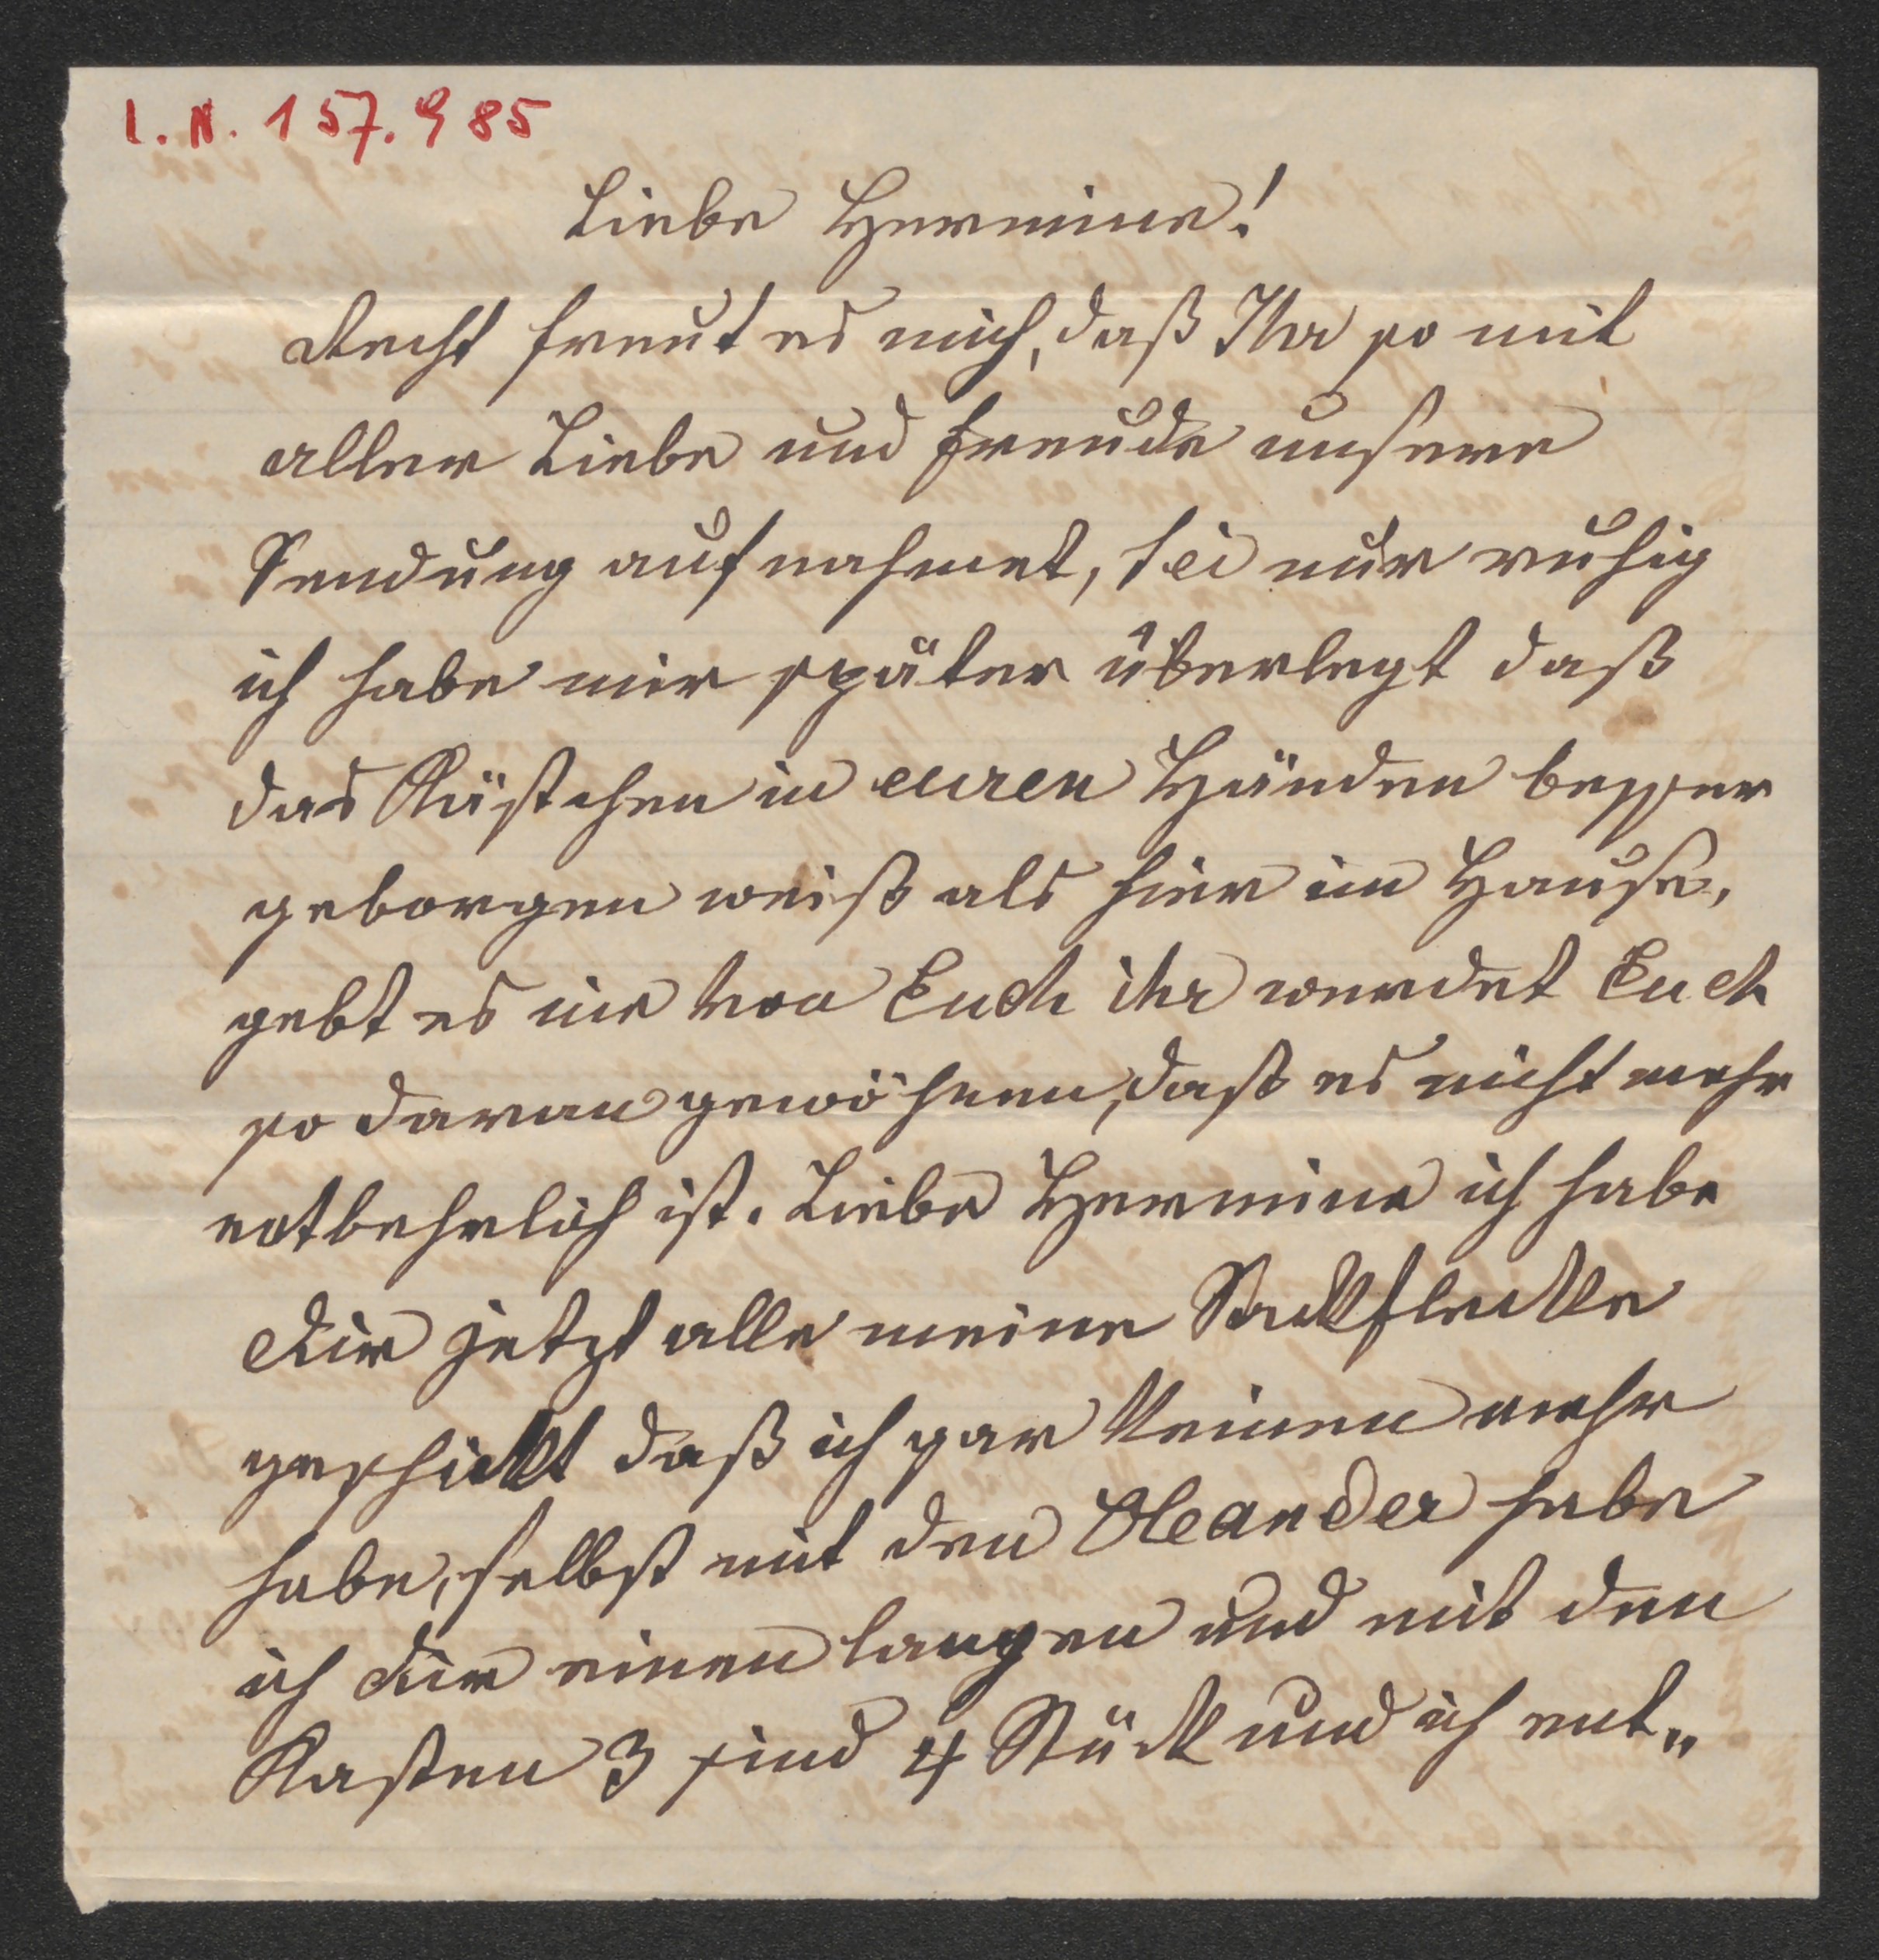 I.N. 157.985
Liebe Hermine!
Recht freut es mich, daß Ihr so mit
aller Liebe und Freude unsere
Sendung aufnahmet, sei nur ruhig
ich habe mir später überlegt daß
das Kästchen in euren Händen besser
geborgen weiß als hier im Hause,
gebt es nie von Euch ihr werdet Euch
so daran gewöhnen, daß es nicht mehr
entbehrlich ist. Liebe Hermine ich habe
Dir jetzt alle meine
geschickt daß ich gar keinen mehr
habe, selbst mit den Oleander habe
ich Dir einen langen und mit den
Kasten 3 sind 4 Stück und ich ent„